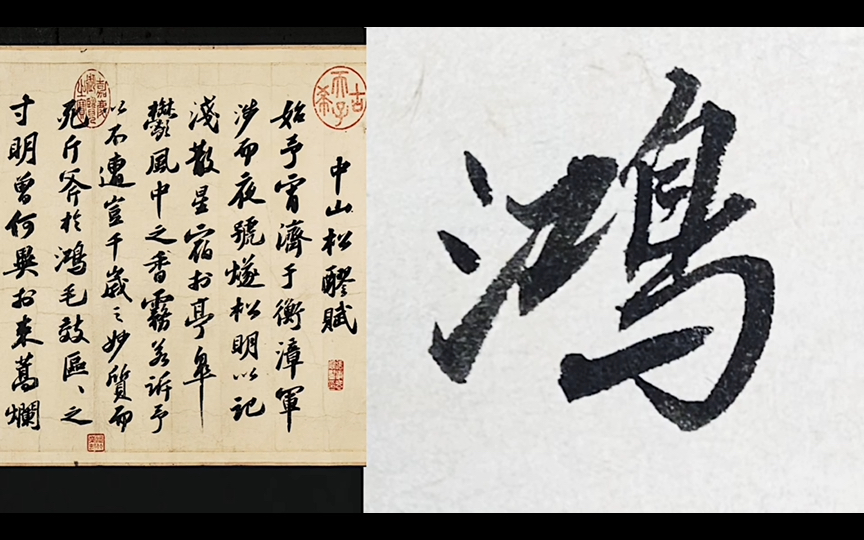 古希天子
中山松醪賦
始予宵濟于衡漳軍
涉而夜號燧松明以記
淺散星宿於亭皋
鬱風中之香霧若訴予
嘉慶御覽之寶
以不遭豈千歲之妙質而
死斤斧於鴻毛效區、之
寸明曾何異於束蒿爛
鴻